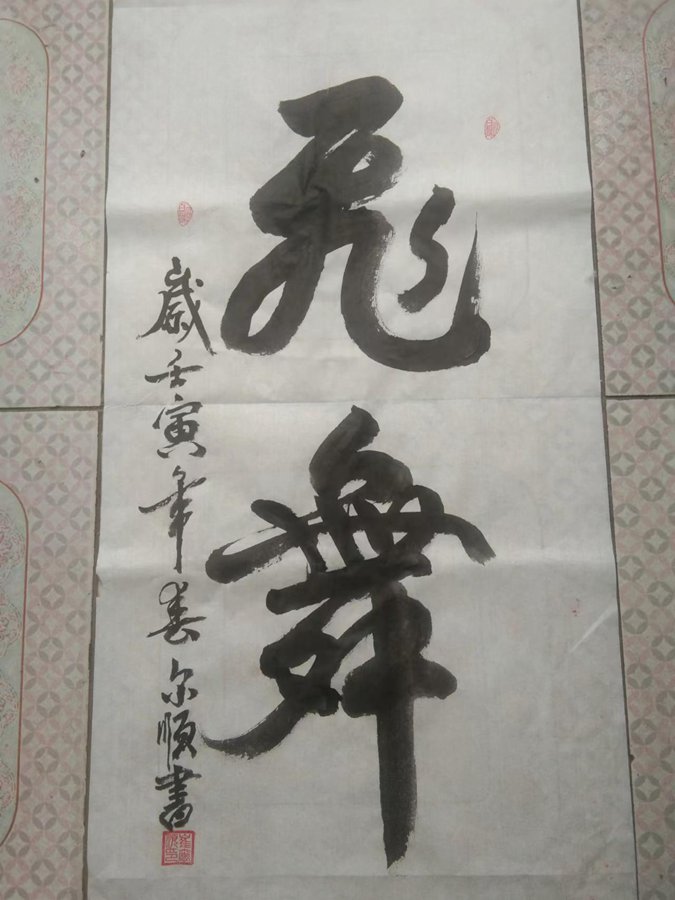 飛舞
歲壬寅年春尔順書